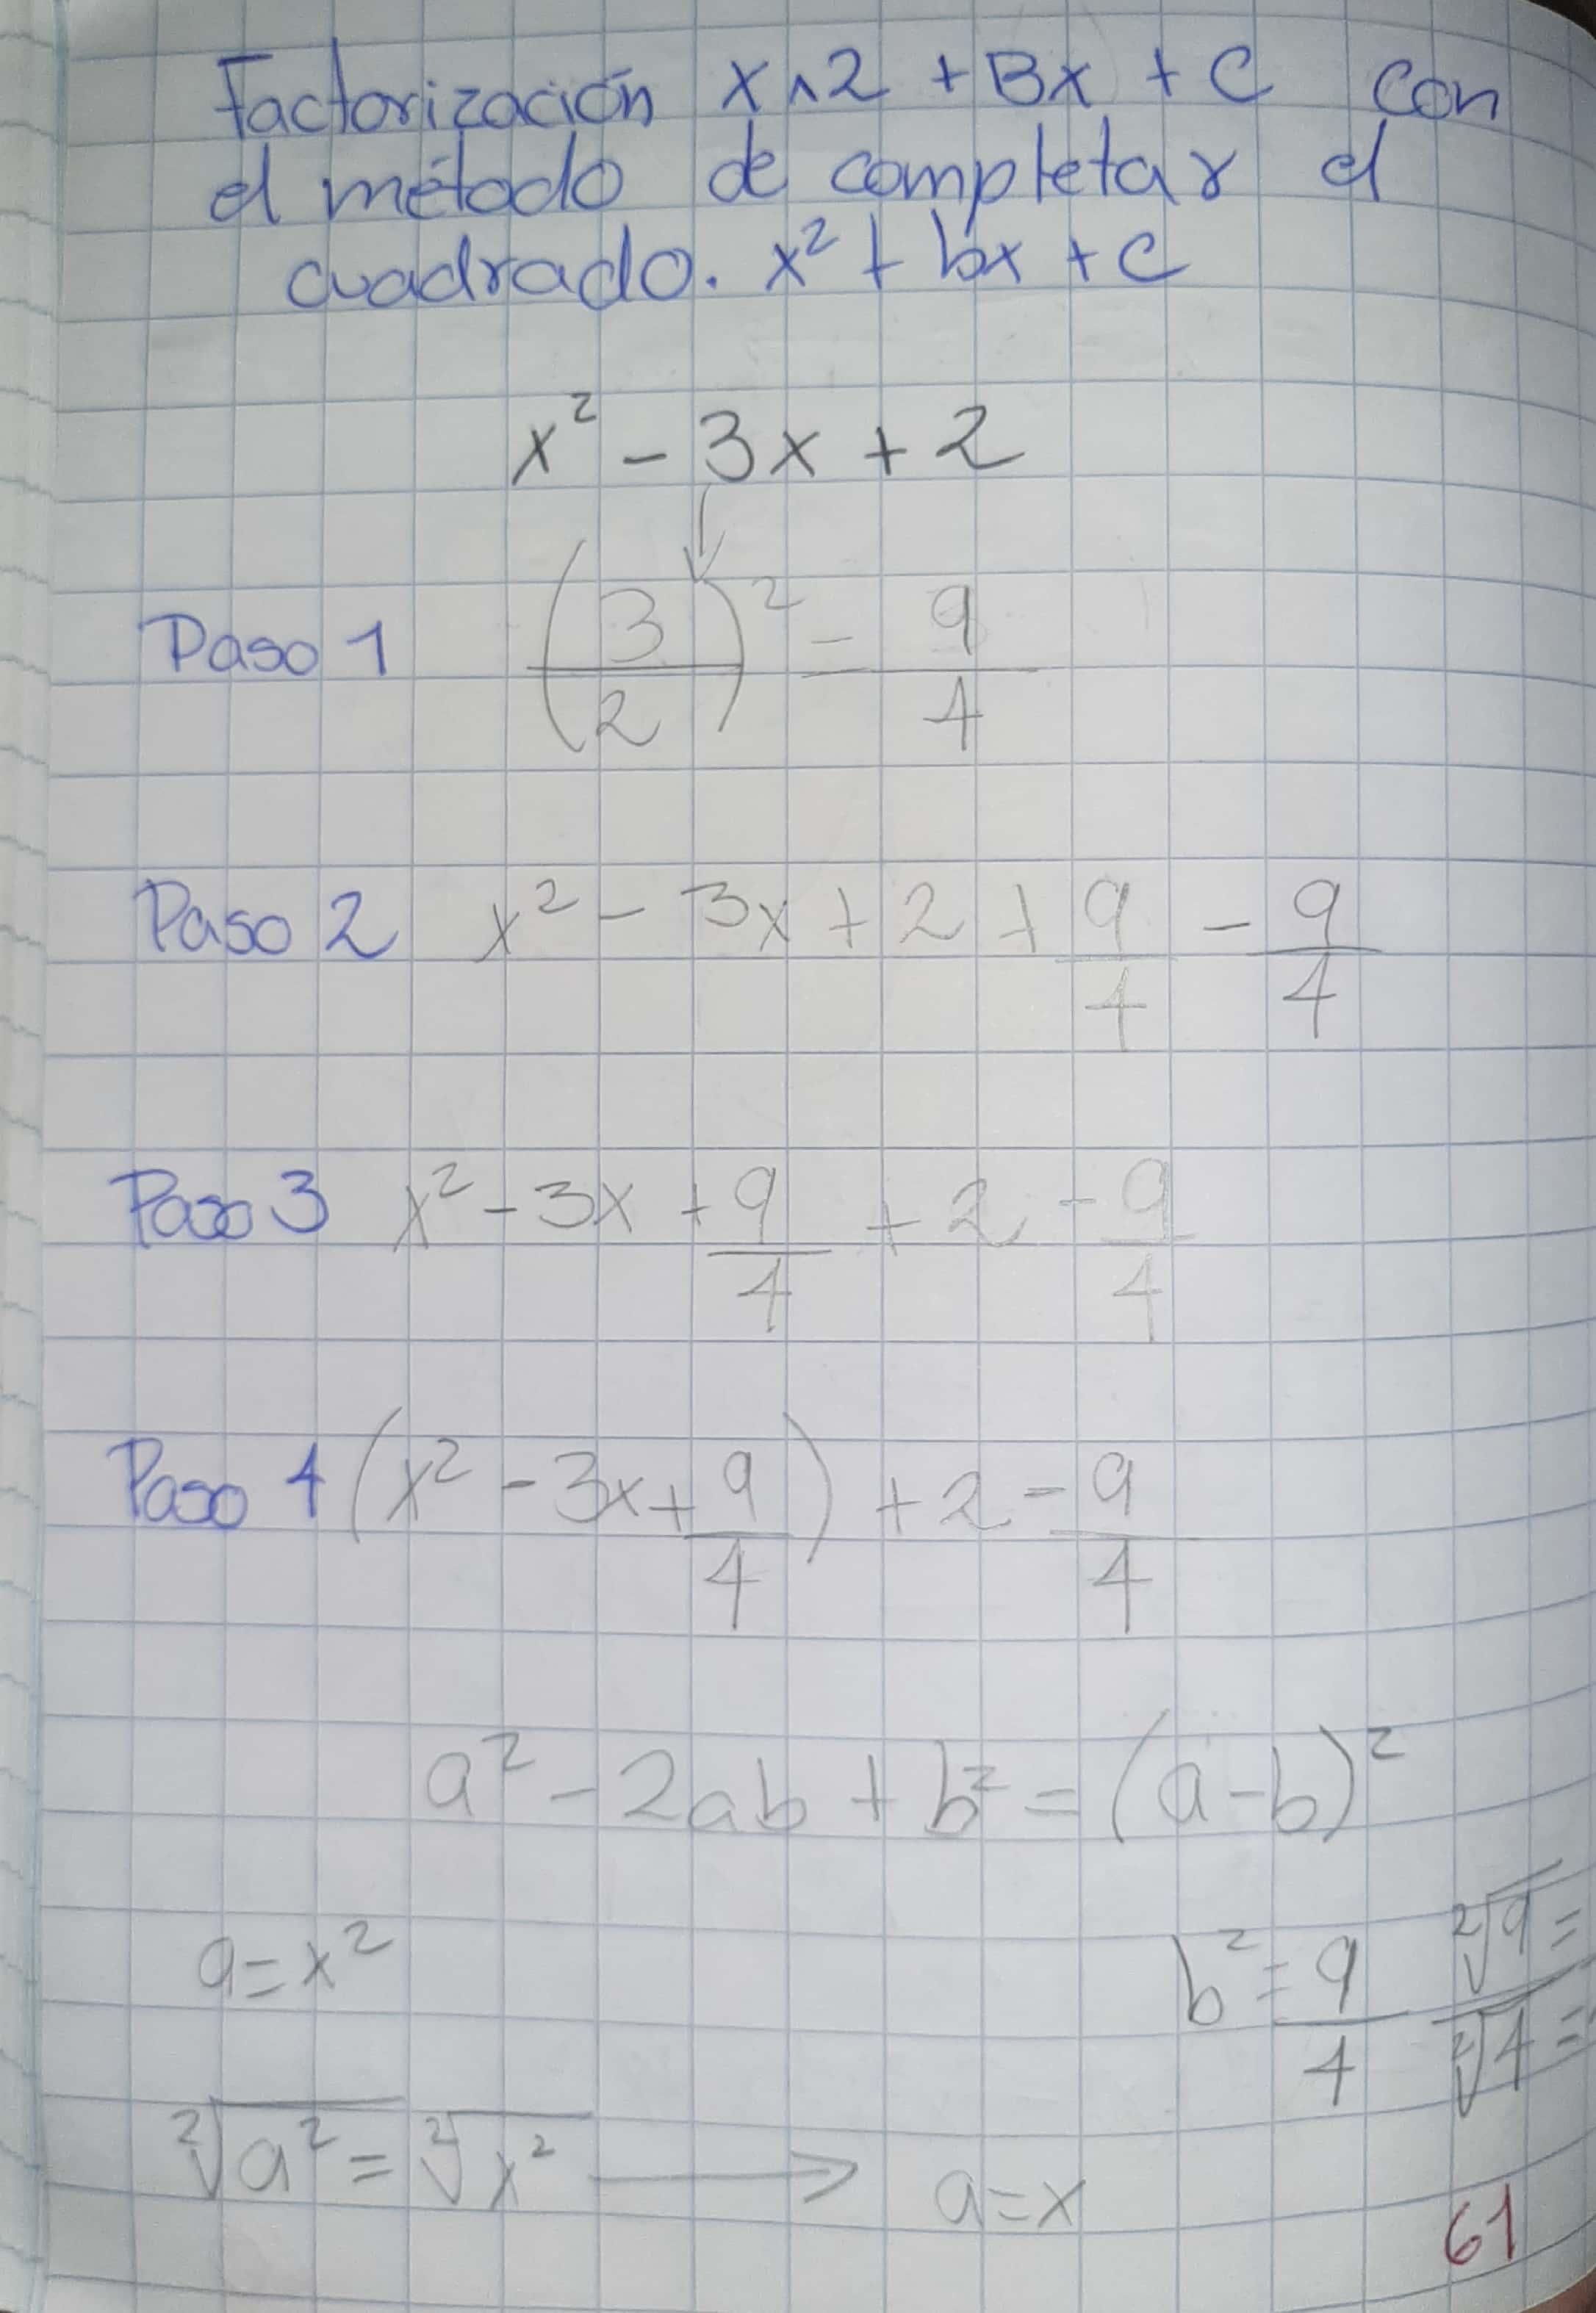 Factorización x^2 + Bx + C con
el método de completar el
cuadrado. x² + bx + c
x² - 3x + 2
Paso 1 (3/2)² = 9/4
Paso 2 x² - 3x + 2 + 9/4 - 9/4
Paso 3 x² - 3x + 9/4 + 2 - 9/4
Paso 4 (x² - 3x + 9/4) + 2 - 9/4
a² - 2ab + b² = (a - b)²
a = x² b² = 9/4 ²√9 = / ²√4 =
²√a² = ²√x² → a = x
61